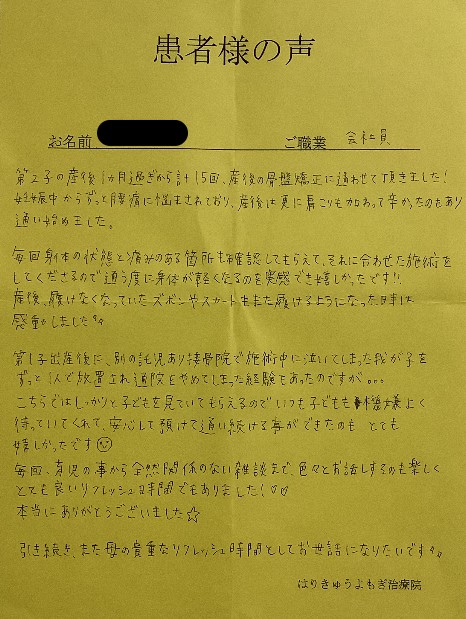 患者様の声
お名前
ご職業 会社員
第2子の産後1ヶ月過ぎから計15回、産後の骨盤矯正に通わせて頂きました!
妊娠中からずっと腰痛に悩まされており、産後は更に肩こりも加わって辛かったのもあり
通い始めました。
毎回身体の状態と痛みのある箇所も確認してもらえて、それに合わせた施術を
してくださるので通う度に身体が軽くなるのを実感でき嬉しかったです!!
産後、履けなくなっていたズボンやスカートもまた履けるようになった時は
感動しました
第1子出産後に、別の託児あり接骨院で施術中に泣いてしまった我が子を
ずっと1人で放置され通院をやめてしまった経験もあったのですが。。。
こちらではしっかりと子どもを見ていてもらえるのでいつも子どもも機嫌よく
待っていてくれて、安心して預けて通い続ける事ができたのも とても
嬉しかったです
毎回、育児の事から全然関係のない雑談まで、色々とお話しするのも楽しく
とても良いリフレッシュ時間でもありました!♡♡
本当にありがとうございました☆
引き続き、また母の貴重なリフレッシュ時間としてお世話になりたいです
はりきゅうよもぎ治療院